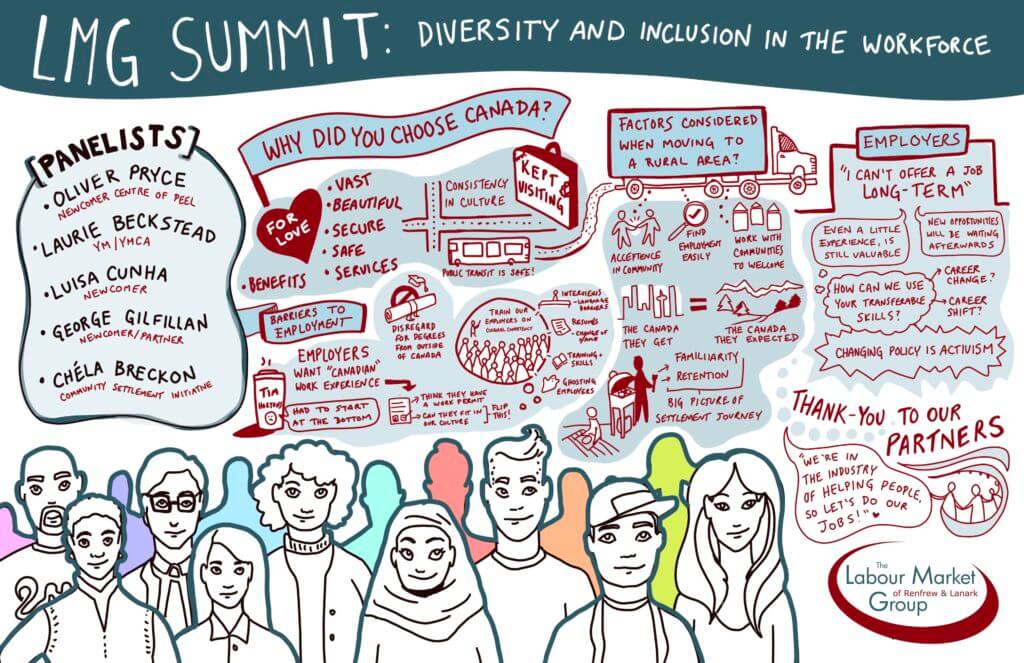 LMG SUMMIT: DIVERSITY AND INCLUSION IN THE WORKFORCE
[PANELISTS]
• OLIVER PRYCE
NEWCOMER CENTRE OF PEEL
• LAURIE BECKSTEAD
YM/YMCA
• LUISA CUNHA
NEWCOMER
• GEORGE GILFILLAN
NEWCOMER/PARTNER
• CHÉLA BRECKON
COMMUNITY SETTLEMENT INITIATIVE
WHY DID YOU CHOOSE CANADA?
FOR
LOVE
• VAST
• BEAUTIFUL
• SECURE
• SAFE
• SERVICES
• BENEFITS
CONSISTENCY
IN CULTURE
KEPT
VISITING
PUBLIC TRANSIT IS SAFE!
BARRIERS TO
EMPLOYMENT
DISREGARD
FOR DEGREES
FROM OUTSIDE
OF CANADA
EMPLOYERS
WANT "CANADIAN"
WORK EXPERIENCE
TIM
HORTONS
HAD TO START
AT THE BOTTOM
THINK THEY HAVE
A WORK PERMIT
CAN THEY FIT IN
OUR CULTURE
FLIP
THIS!
TRAIN OUR
EMPLOYERS ON
CULTURAL COMPETENCY
INTERVIEWS
- LANGUAGE
BARRIERS
RESUMÉS
- CHANGE OF
NAME
TRAINING +
SKILLS
GHOSTING
EMPLOYERS
FACTORS CONSIDERED
WHEN MOVING TO
A RURAL AREA?
ACCEPTANCE
IN COMMUNITY
FIND
EMPLOYMENT
EASILY
WORK WITH
COMMUNITIES
TO WELCOME
THE CANADA
THEY GET
=
THE CANADA
THEY EXPECTED
FAMILIARITY
RETENTION
BIG PICTURE OF
SETTLEMENT JOURNEY
EMPLOYERS
"I CAN'T OFFER A JOB
LONG-TERM"
EVEN A LITTLE
EXPERIENCE, IS
STILL VALUABLE
NEW OPPORTUNITIES
WILL BE WAITING
AFTERWARDS
HOW CAN WE USE
YOUR TRANSFERABLE
SKILLS?
CAREER
CHANGE?
CAREER
SHIFT?
CHANGING POLICY IS ACTIVISM
THANK-YOU TO OUR
PARTNERS
"WE'RE IN
THE INDUSTRY
OF HELPING PEOPLE,
SO LET'S DO OUR
JOBS!"
The
Labour Market
of Renfrew & Lanark
Group